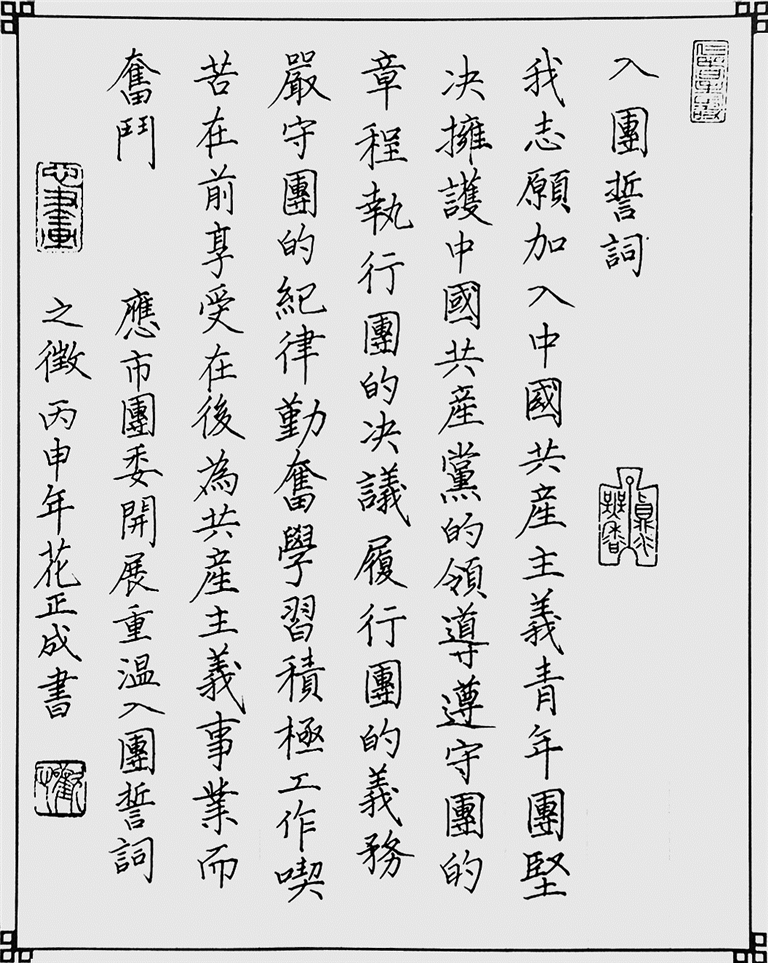 入團誓詞
我志願加入中國共産主義青年團堅
决擁護中國共産黨的領導遵守團的
章程執行團的决議履行團的義務
嚴守團的紀律勤奮學習積極工作喫
苦在前享受在後為共産主義事業而
奮鬥
應市團委開展重温入團誓詞
之徵丙申年花正成書